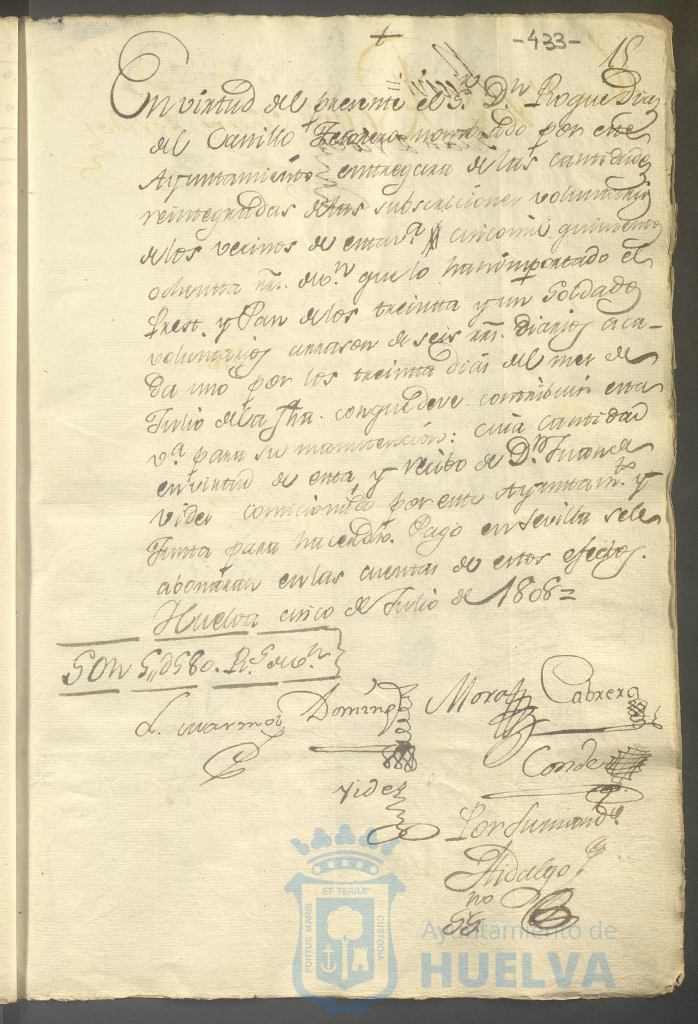 -433-
18
En virtud del presente el Sr. Dn. Roque Diaz
del Castillo Tesorero nombrado por este
Ayuntamiento entregara de las cantidades
reintegradas de las subscriciones voluntarias
de los vecinos de esta va. cinco mil quinientos
ochenta rrs. de von. que lo ha importado el
Prest. y Pan de los treinta y un Soldados
voluntarios arrason de seis rrs. diarios a ca-
da uno por los treinta dias del mes de
Julio de la fha. con que deve contribuir esta
va. para su manutencion: cuia cantidad
en virtud de esta y recibo de Dn. Juan de
Vides comicionado por este Ayuntamto. y
Junta para hacer dho. Pago en Sevilla se le
abonaran en las cuentas de estos efectos.
Huelva cinco de Julio de 1808=
Son 5,,d580. Rs. de von.
Domingz Mora Cabrera
Conde
Vides
Por su mandо.
Hidalgo
no
SS
ET TERRÆ
PORTUS MARIS
CUSTODIA
Ayuntamiento de
HUELVA